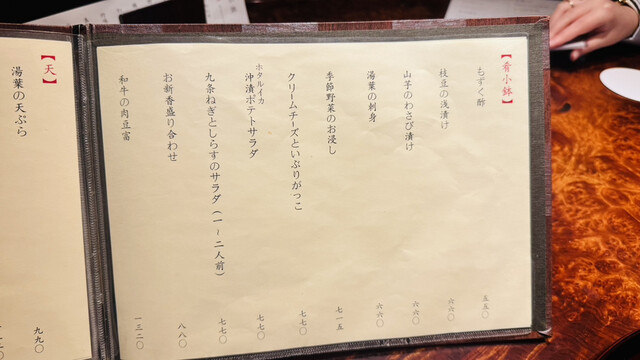 【肴小鉢】
もずく酢 五五〇
枝豆の浅漬け 六六〇
山芋のわさび漬け 六六〇
湯葉の刺身 六六〇
季節野菜のお浸し 七一五
クリームチーズといぶりがっこ 七七〇
ホタルイカ
沖漬ポテトサラダ 七七〇
九条ねぎとしらすのサラダ(一~二人前) 七七〇
お新香盛り合わせ 八八〇
和牛の肉豆富 一三二〇
【天】
湯葉の天ぷら 九九〇